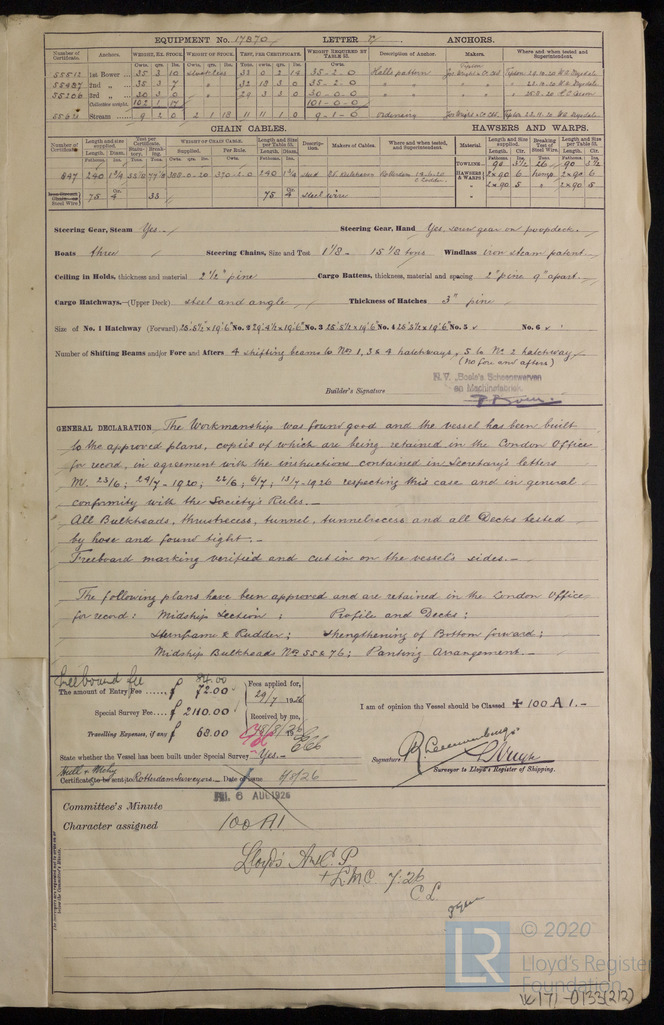 EQUIPMENT No. 17870 LETTER ANCHORS.
Number of Certificate. Anchors. WEIGHT, EX. STOCK. WEIGHT OF STOCK. TEST, PER CERTIFICATE. WEIGHT REQUIRED BY TABLE 53. Description of Anchor. Makers. Where and when tested and Superintendent.
Cwts. qrs. lbs. Cwts. qrs. lbs. Tons. cwts. qrs. lbs. Cwts.
55512 1st Bower 35 3 10 stockless 33 0 2 14 35-2-0 Halls pattern
55487 2nd „ 35 3 7 „ 32 18 3 0 35-2-0 „
55206 3rd „ 30 3 0 „ 29 3 3 0 30-0-0 „
Collective weight. 102 1 17 101-0-0
Stream 9 2 0 2 1 18 11 11 1 0 9-1-0 ordinary
CHAIN CABLES. HAWSERS AND WARPS.
Number of Certificate. Length and size supplied. Test per Certificate. WEIGHT OF CHAIN CABLE. Length and Size per Table 53. Description. Makers of Cables. Where and when tested, and Superintendent. Material. Length and Size supplied. Breaking Test of Steel Wire. Length and Size per Table 53.
Fathoms. Diam. Supplied. Per Rule. Fathoms. Ins.
TOWLINE
847 240 1 3/4 370-2-0 240 1 3/4 stud Rotterdam HAWSERS & WARPS 2x90 6 hemp 2x90 6
„ 2x90 5 „ 2x90 5
75 4 33 75 4 steel wire
Steering Gear, Steam Yes. Steering Gear, Hand Yes, screw gear on poopdeck.
Boats three Steering Chains, Size and Test 1 1/8 - 15 1/8 tons Windlass iron steam patent.
Ceiling in Holds, thickness and material 2 1/2" pine Cargo Battens, thickness, material and spacing 2" pine 9" apart.
Cargo Hatchways.-(Upper Deck) steel and angle Thickness of Hatches 3" pine
Size of No. 1 Hatchway (Forward) 25'5½"x19'6" No. 2 29'4½"x19'6" No. 3 25'5½x19'6" No. 4 25'5½x19'6" No. 5 No. 6
Number of Shifting Beams and/or Fore and Afters 4 shifting beams to Nos 1, 3 & 4 hatchways, 5 to No. 2 hatchway
(no fore and afters)
N.V. Boele's Scheepswerven
en Machinefabriek
Builder's Signature
GENERAL DECLARATION The Workmanship was found good and the vessel has been built
to the approved plans, copies of which are being retained in the London Office
for record, in agreement with the instructions contained in Secretary's letters
M. 23/6; 29/7-1920; 22/6; 6/7; 13/7-1926 respecting this case and in general
conformity with the Society's Rules.-
All Bulkheads, thrustrecess, tunnel, tunnelrecess and all Decks tested
by hose and found tight.-
Freeboard marking verified and cut in on the vessel's sides.-
The following plans have been approved and are retained in the London Office
for record: Midship Section; Profile and Decks;
Sternframe & Rudder; Strengthening of Bottom forward;
Midship Bulkheads Nos 55 & 76; Panting Arrangement.-
Freeboard fee 84.00
The amount of Entry Fee £ 72.00 Fees applied for, 29/7 1926
Special Survey Fee £ 2110.00 Received by me,
Travelling Expenses, if any £ 68.00
I am of opinion the Vessel should be Classed ✠ 100 A 1.-
State whether the Vessel has been built under Special Survey Yes.-
Signature
Surveyor to Lloyd's Register of Shipping.
Hull & Mchy
Certificate to be sent to Rotterdam Surveyors. Date of issue
FRI. 6 AUG 1926
Committee's Minute
Character assigned 100 A1
Lloyd's A & C. P.
+ LMC 7.26
C L
© 2020
LR
Lloyd's Register
Foundation
W171-0133(2/2)